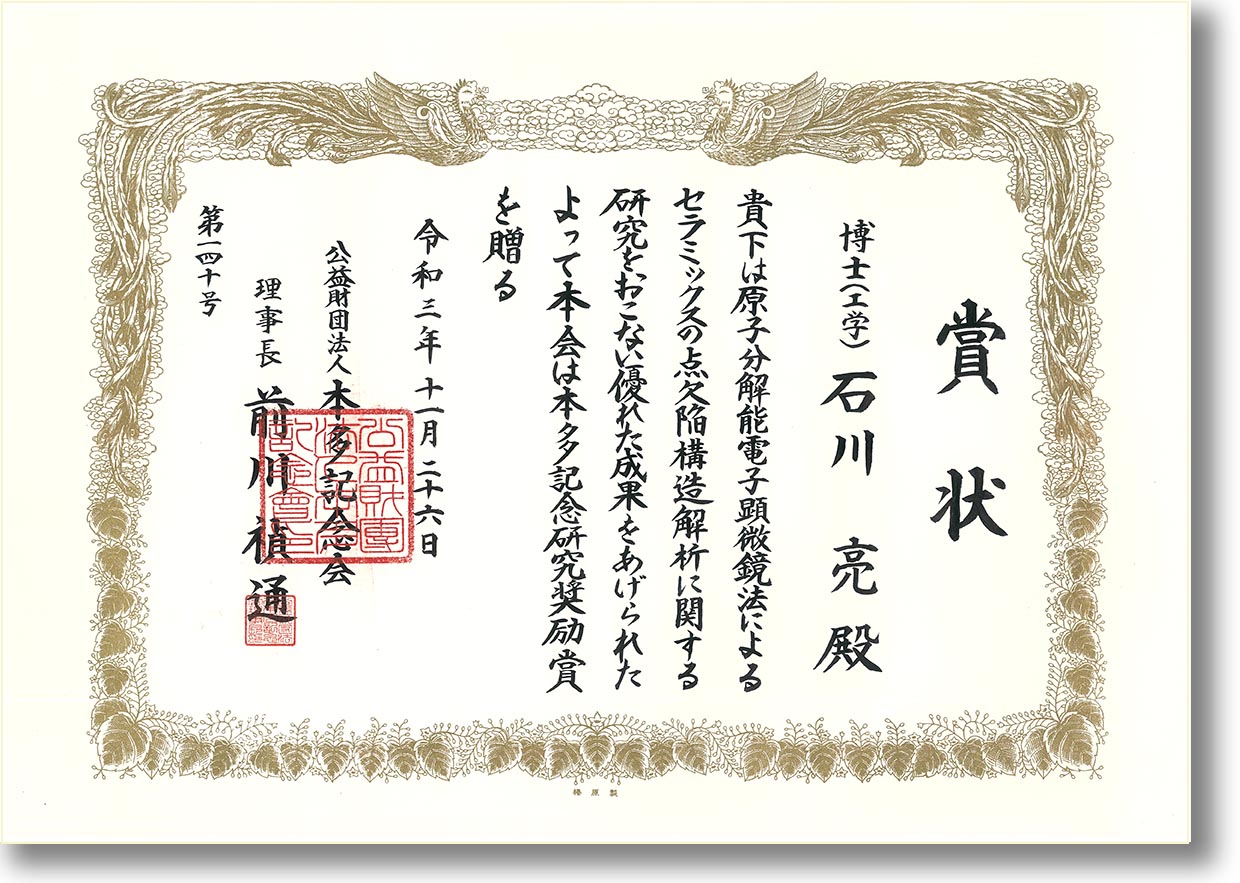 賞状
博士(工学) 石川 亮 殿
貴下は原子分解能電子顕微鏡法による
セラミックスの点欠陥構造解析に関する
研究をおこない優れた成果をあげられた
よって本会は本多記念研究奨励賞
を贈る
令和三年十一月二十六日
公益財団法人 本多記念会
理事長 前川禎通
第一四十号
公益財團
記念會
榛原製